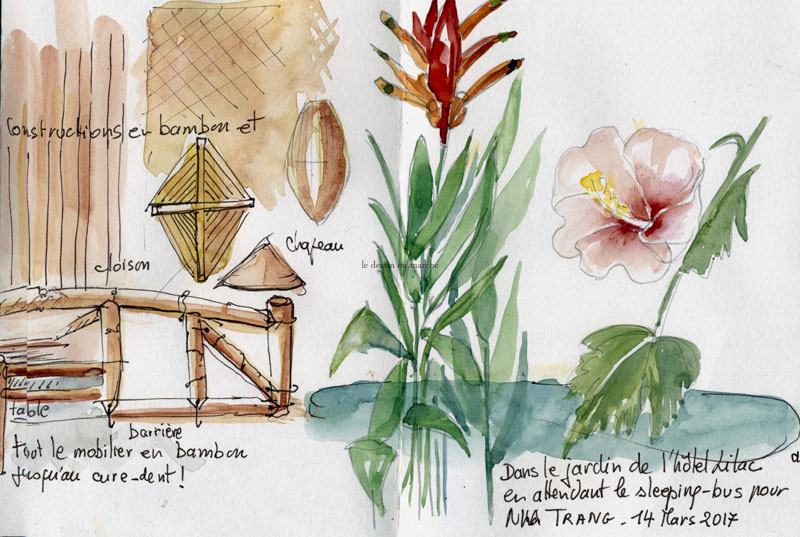 Constructions en bambou et
cloison
chapeau
le dessin en marche
table
barrière
tout le mobilier en bambou
jusqu'au cure-dent !
Dans le jardin de l'hôtel Lilac
en attendant le sleeping-bus pour
Nha TRANG - 14 Mars 2017